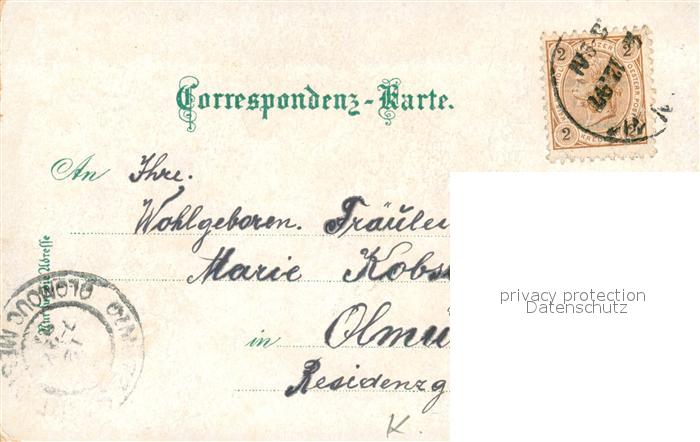 Correspondenz-Karte.
An Ihre.
Wohlgeboren. Fräulei
Marie Kobs
in Olmü
Residenzg
K.
Nur für die Adresse
OLOMOUC MĚS
2 2
2 2
privacy protection
Datenschutz